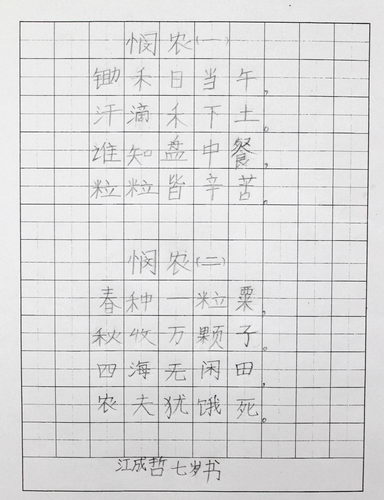 悯农(一)
锄禾日当午,
汗滴禾下土。
谁知盘中餐,
粒粒皆辛苦。
悯农(二)
春种一粒粟,
秋收万颗子。
四海无闲田,
农夫犹饿死。
江成哲七岁书